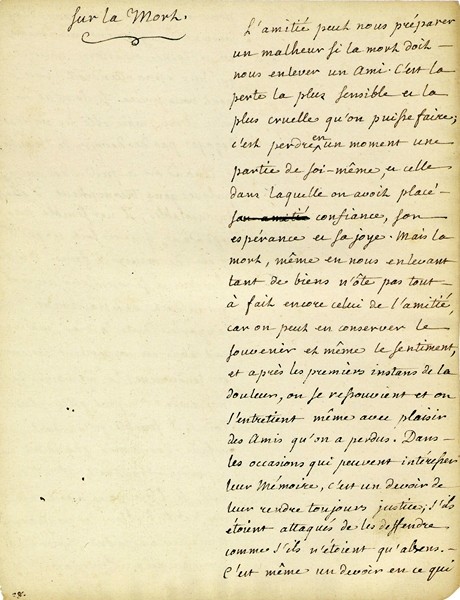 Sur la Mort.
L'amitié peut nous préparer
un malheur si la mort doit
nous enlever un Ami. C'est la
perte la plus sensible et la
plus cruelle qu'on puisse faire;
c'est perdre en un moment une
partie de soi-même, et celle
dans laquelle on avoit placé
son amitié confiance, son
espérance et sa joye. Mais la
mort, même en nous enlevant
tant de biens n'ôte pas tout
à fait encore celui de l'amitié,
car on peut en conserver le
souvenir et même le sentiment,
et après les premiers instans de la
douleur, on se ressouvient et on
s'entretient même avec plaisir
des Amis qu'on a perdus. Dans
les occasions qui peuvent intéresser
leur Mémoire, c'est un devoir de
leur rendre toujours justice; s'ils
étoient attaqués de les deffendre
comme s'ils n'étoient qu'absens.
C'est même un devoir en ce qui